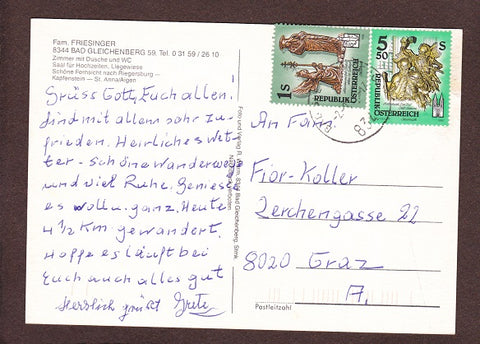 Fam. FRIESINGER
8344 BAD GLEICHENBERG 59, Tel. 0 31 59 / 26 10
Zimmer mit Dusche und WC
Saal für Hochzeiten, Liegewiese
Schöne Fernsicht nach Riegersburg —
Kapfenstein — St. Anna/Aigen
Grüss Gott, Euch allen!
Sind mit allem sehr zu-
frieden. Herrliches Wet-
ter - schöne Wanderwege
und viel Ruhe. Geniesse
es voll u. ganz. Heute
4 1/2 Km gewandert.
Hoffe es läuft bei
Euch auch alles gut
Herzlich grüßt Grete
Foto und Verlag 8344 Bad Gleichenberg, Stmk.
1 S
REPUBLIK
ÖSTERREICH
5 50
S
REPUBLIK
ÖSTERREICH
An Fam.
Fior-Koller
Lerchengasse 22
8020 Graz
A.
Postleitzahl